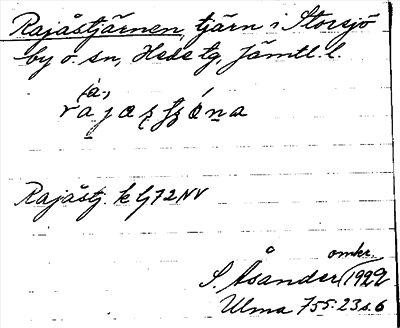 Rajåstjärnen, tjärn i Storsjö
by o. sn, Hede tg, Jämtl. l.
Rajåstj. k G 72 NV
omkr.
S. Åsander 1922
Ulma 755:23 s. 6